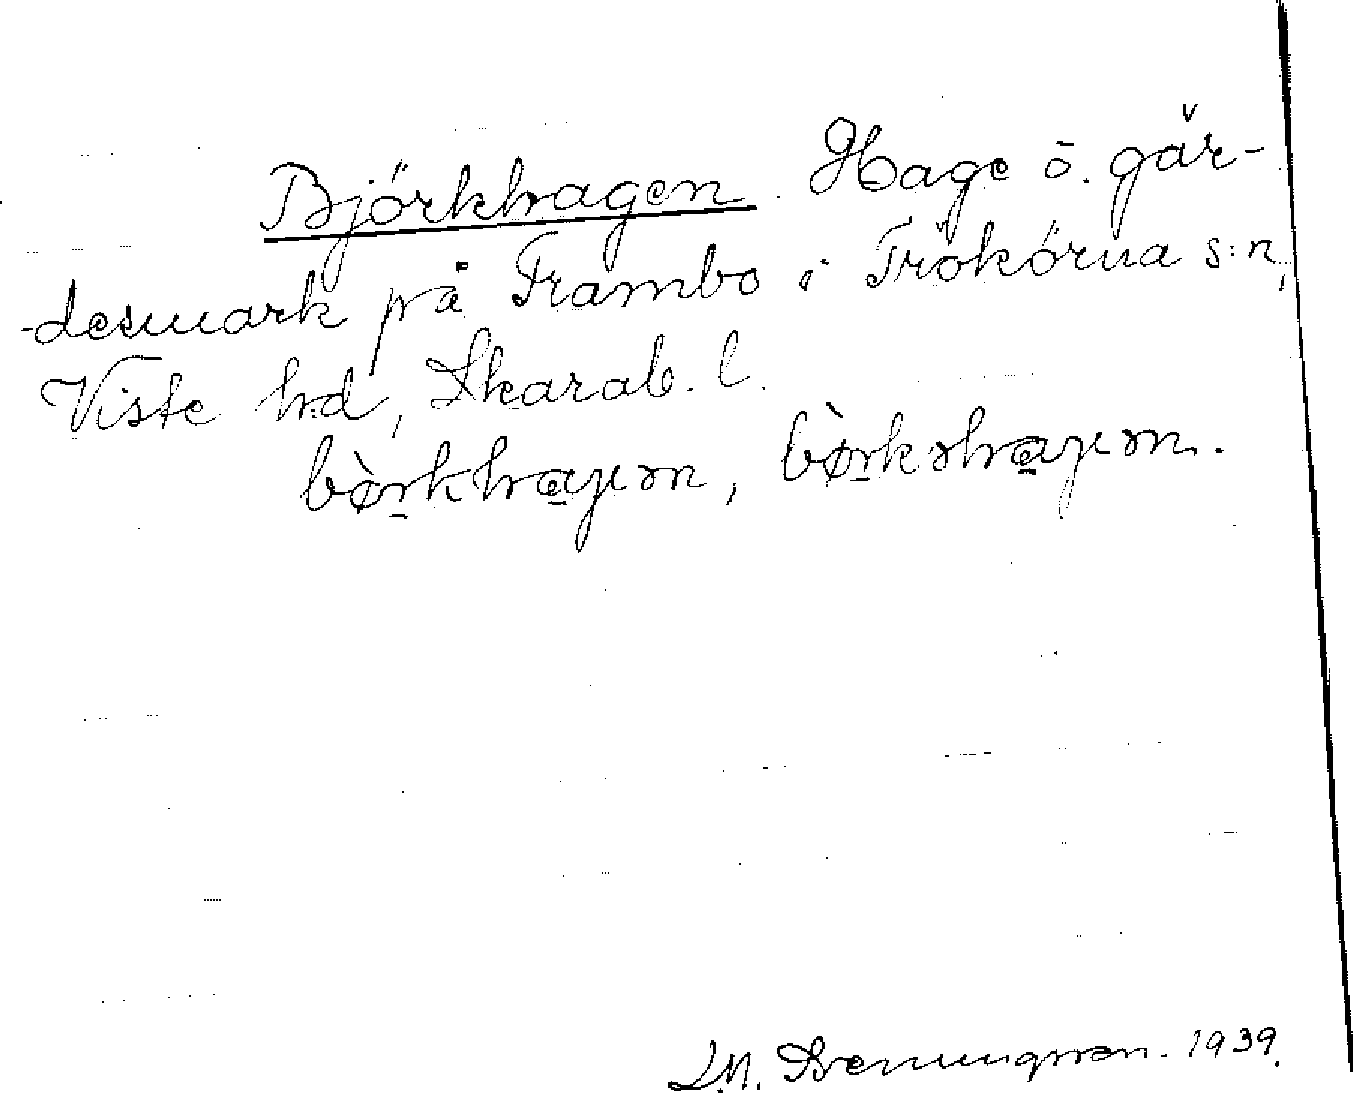 Björkhagen. Hage ö. gär-
-desmark på Frambo i Trökörna s:n,
Viste hd, Skarab. l.
bø̀rkhaɡən, bø̀rkəhaɡən.
1939.